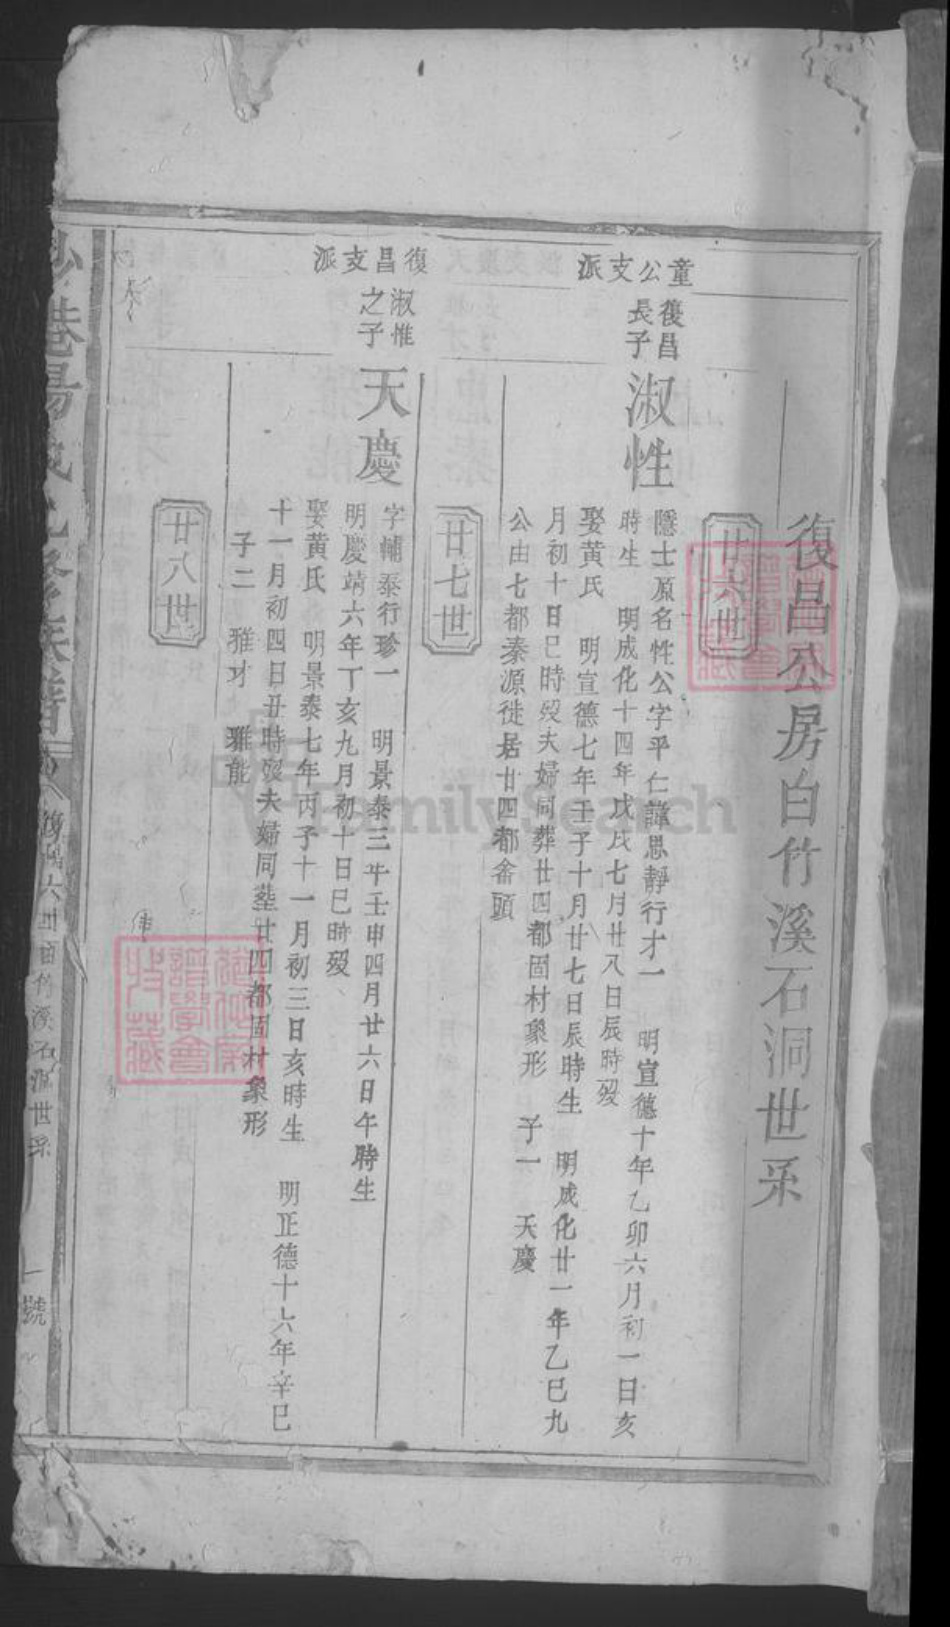 復昌公房白竹溪石洞世系
廿六世
童公支派
復昌
長子
淑性
隱士原名性公字平仁諱思靜行才一　明宣德十年乙卯六月初一日亥
時生　明成化十四年戊戌七月廿八日辰時歿
娶黄氏　明宣德七年壬子十月廿七日辰時生　明成化廿一年乙巳九
月初十日巳時歿夫婦同葬廿四都固村象形　子一　天慶
公由七都秦源徙居廿四都畲頭
廿七世
復昌支派
淑惟
之子
天慶
字輔泰行珍一　明景泰三年壬申四月廿六日午時生
明慶靖六年丁亥九月初十日巳時歿
娶黄氏　明景泰七年丙子十一月初三日亥時生　明正德十六年辛巳
十一月初四日丑時歿夫婦同塟廿四都固村象形
子二　雅才　雅能
廿八世
溪石洞世系
一號
FamilySearch